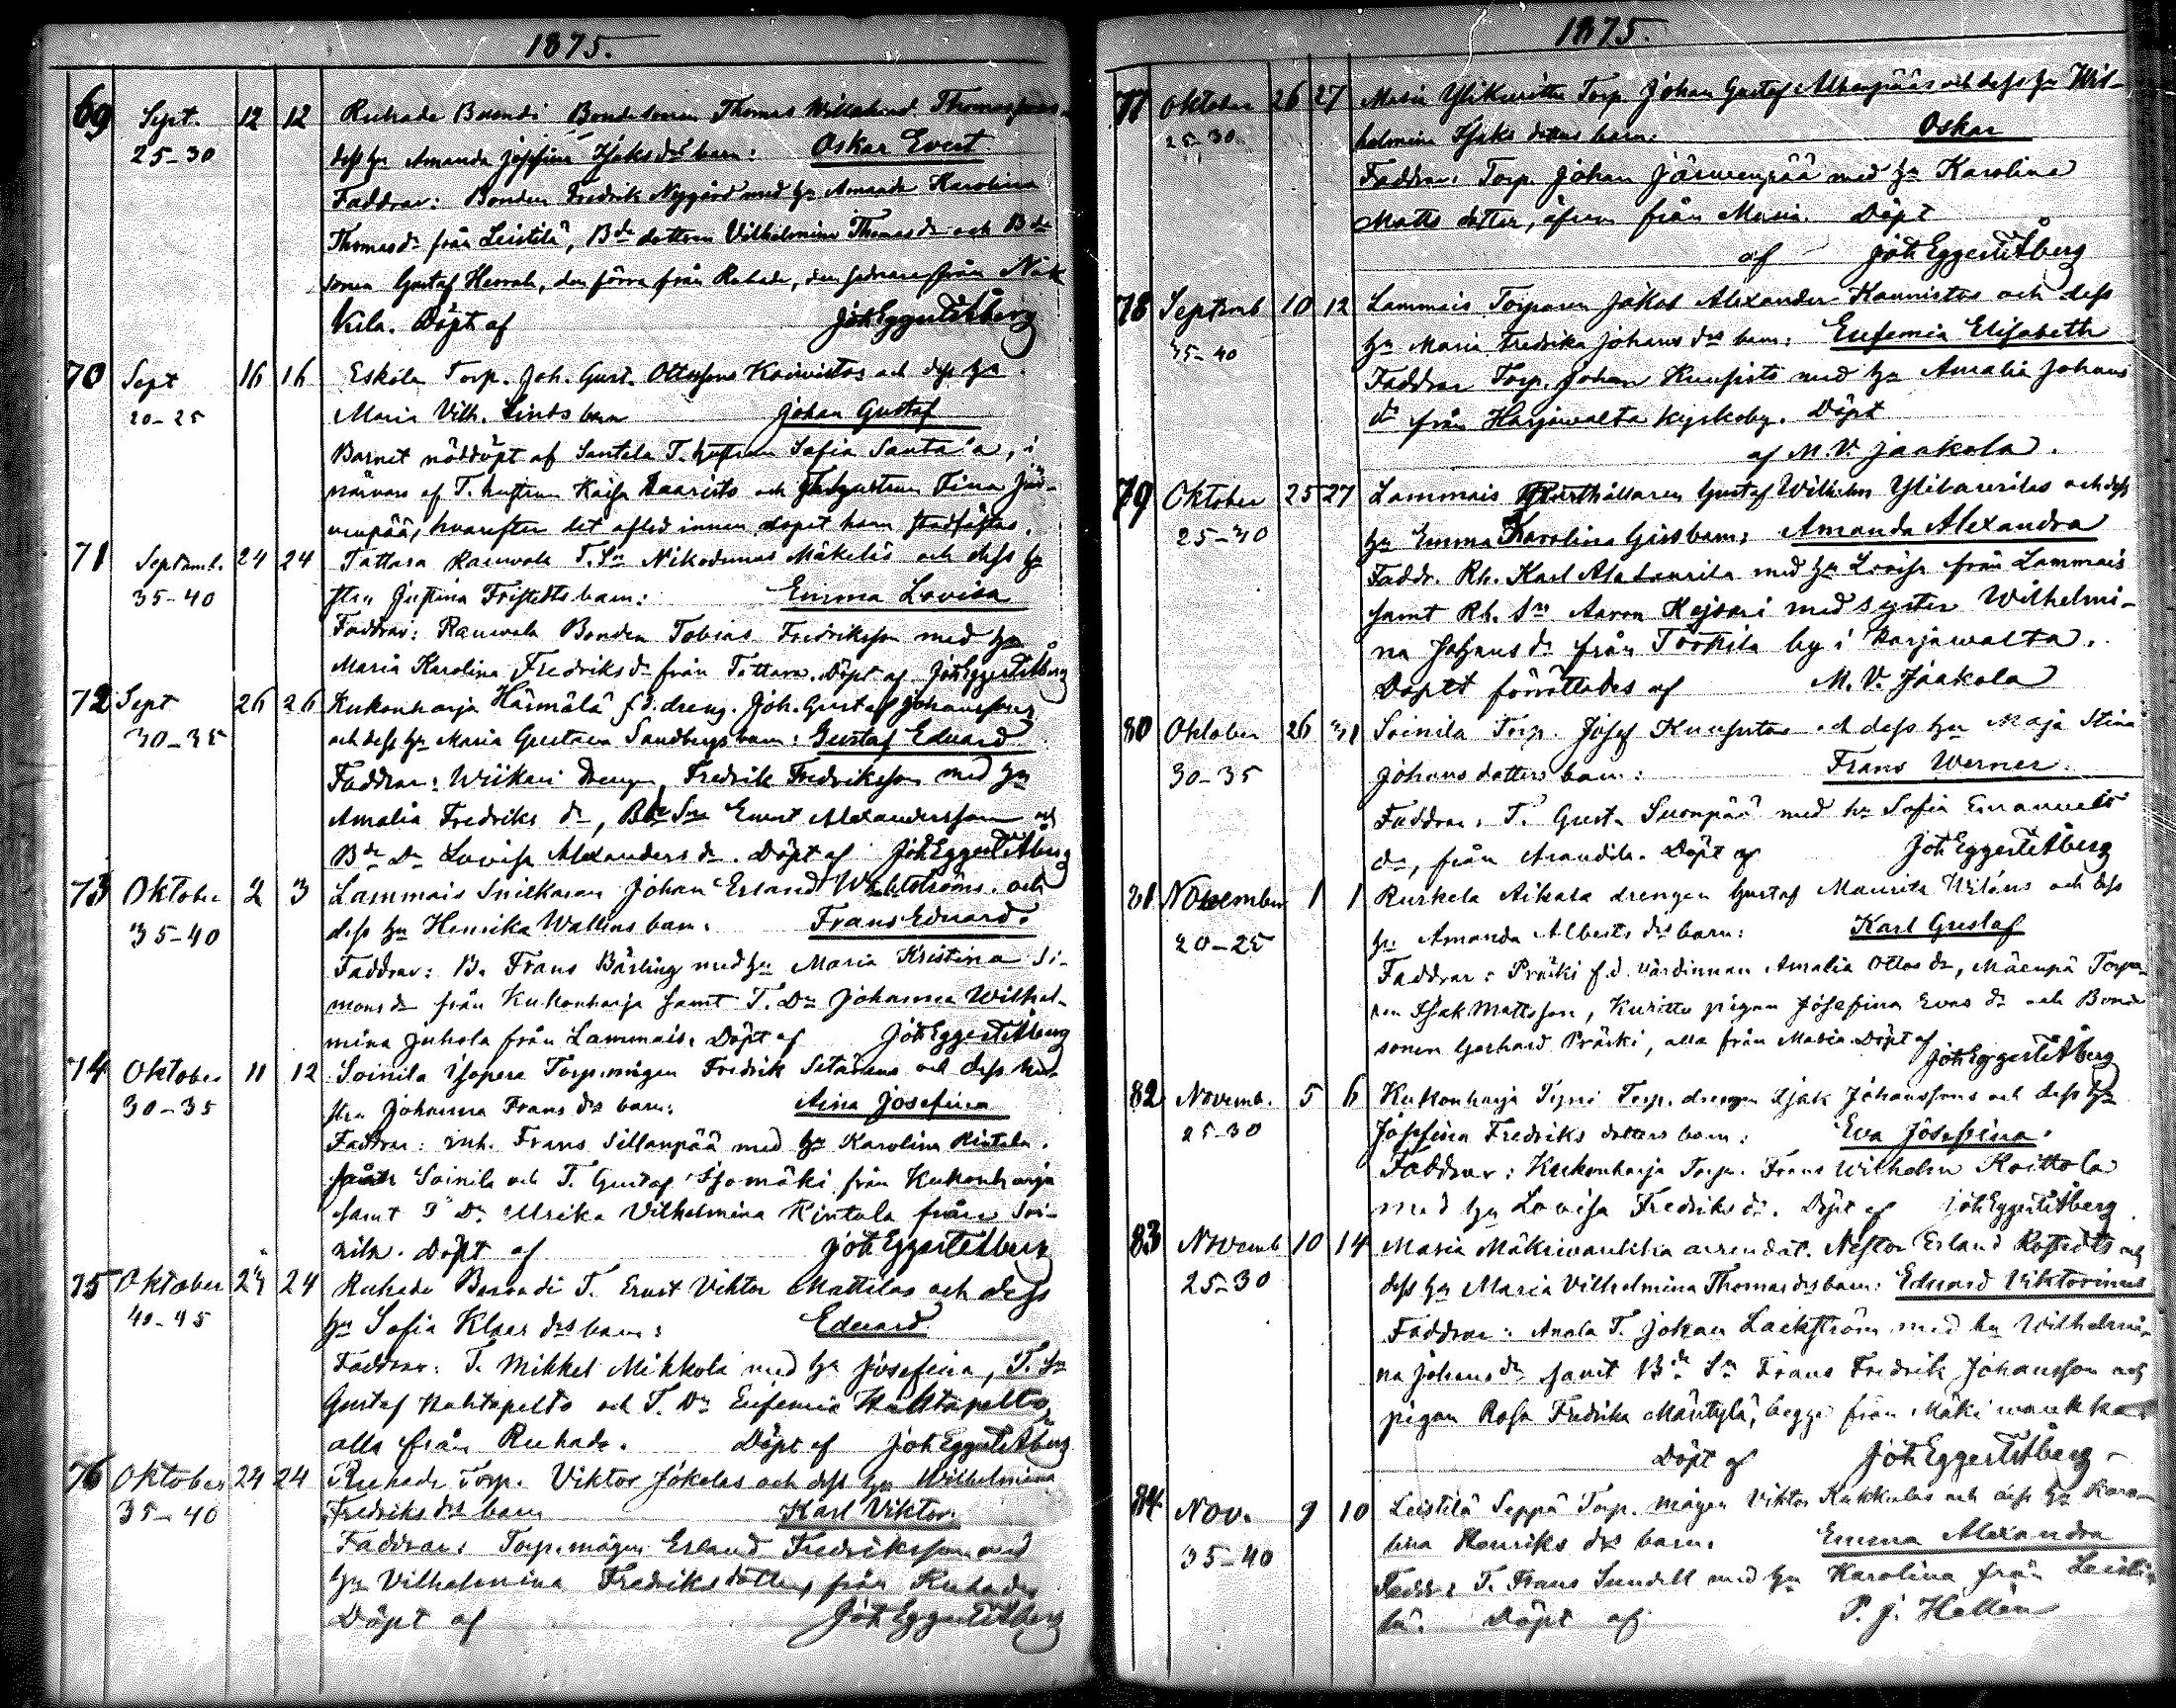 1875.
69 Sept. 12 12 Ruhade Buondi Bondesonen Thomas Thomassons
25-30 dess hu Amanda Josefina Isaks drs barn: Oskar Evert
Faddrar: Bonden Fredrik Nygård med hu Amanda Karolina
Thomasdr från Leistilä, Bde dottren Vilhelmina Thomasdr och Bde
sonen Gustaf Herrala, den förra från Ruhade, den sednare från Nak
kila. Döpt af Joh Eggert Åberg
70 Sept 16 16 Eskola Torp. Joh. Gust. Ottossons Koivistos och dess hu
20-25 Maria Vilh. Linds barn Johan Gustaf
Barnet nöddöpt af Santala T. hustrun Sofia Santala, i
närvaro af T. hustrun Kaisa och Fina Jär-
venpää, hvarefter det afled innan dopet hann stadfästas.
71 Septemb. 24 24 Tattara Rauvola T. Sn Nikodemus Mäkeläs och dess hu
35-40 stru Justina Fristedts barn: Emma Lovisa
Faddrar: Rauvola Bonden Tobias Fredriksson med hu
Maria Karolina Fredriks dr från Tattara. Döpt af Joh Eggert Åberg
72 Sept 26 26 Kukonharja Härmälä f.d. dreng. Joh. Gustaf Johanssons
30-35 och dess hu Maria Gustava Sandbergs barn: Gustaf Eduard
Faddrar: Wiikari Drengen Fredrik Fredriksson med hu
Amalia Fredriks dr, Bde Sn Ernst Alexandersson och
Bde Dr Lovisa Alexanders dr. Döpt af Joh Eggert Åberg
73 Oktober 2 3 Lammais Snickaren Johan Erland Wahlströms och
35-40 dess hu Henrika Wallens barn: Frans Eduard.
Faddrar: B. Frans Bärling med hu Maria Kristina Si-
mons dr från Kukonharja samt T. Dr Johanna Wilhel-
mina Juhola från Lammais. Döpt af Joh Eggert Åberg
74 Oktober 11 12 Soinila Torp. mågen Fredrik och dess hu-
30-35 stru Johanna Frans drs barn: Aina Josefina
Faddrar: inh. Frans Sillanpää med hu Karolina Rintala
från Soinila och T. Gustaf Isomäki från Kukonharja
samt T Dr Ulrika Vilhelmina Rintala från Soi-
nila. Döpt af Joh Eggert Åberg
75 Oktober 24 24 Ruhade T. Ernst Viktor Mattilas och dess
40-45 hu Sofia Klaes drs barn: Eduard
Faddrar: T. Mikkel Mikkola med hu Josefina, T. Sn
Gustaf Kahtapelto och T. Dr Eufemia Kahtapelto,
alla från Ruhade. Döpt af Joh Eggert Åberg
76 Oktober 24 24 Ruhade Torp. Viktor Jokelas och dess hu Wilhelmina
35-40 Fredriks drs barn Karl Viktor.
Faddrar: Torp. mågen Erland Fredriksson med
hu Vilhelmina Fredriksdotter, från Ruhade
Döpt af Joh Eggert Åberg
1875.
77 Oktober 26 27 Masia Ylikuritta Torp. Johan Gustaf och dess hu Wil-
25-30 helmina Isaks dotters barn: Oskar
Faddrar: Torp. Johan Järwenpää med hu Karolina
Matts dotter, äfven från Masia. Döpt
af Joh Eggert Åberg
78 Septemb 10 12 Lammais Torparen Jakob Alexander Kaunistos och dess
35-40 hu Maria Fredrika Johans drs barn: Eufemia Elisabeth
Faddrar Torp. Johan Kuusisto med hu Amalia Johans
dr från Harjawalta kyrkoby. Döpt
af M. V. Jaakola.
79 Oktober 25 27 Lammais Rusthållaren Gustaf Wilhelm och dess
25-30 hu Emma Karolina barn: Amanda Alexandra
Faddr. Rh. Karl med hu Lovisa från Lammais
samt Rh. Sn Aaron Hejsari med syster Wilhelmi-
na Johans dr från Torttila by i Harjawalta.
Dopet förrättades af M. V. Jaakola
80 Oktober 26 31 Soinila Torp. Josef Kuusistos och dess hu Maja Stina
30-35 Johans dotters barn: Frans Werner.
Faddrar: T. Gust. Suonpää med hu Sofia Emanuels
dr, från Arandila. Döpt af Joh Eggert Åberg
81 November 1 1 Kurkela Aikala drengen Gustaf Mauritz och dess
20-25 hu Amanda Alberts drs barn: Karl Gustaf
Faddrar: Präski f.d. värdinnan Amalia Ottos dr, Mäenpä Torpa-
ren Isak Mattsson, Kuritta pigan Josefina Evas dr och Bonde
sonen Gerhard Präski, alla från Masia. Döpt af
Joh Eggert Åberg
82 Novemb. 5 6 Kukonharja Torp. drengen Isak Johanssons och dess hu
25-30 Josefina Fredriks dotters barn: Eva Josefina.
Faddrar: Kukonharja Torp. Frans Wilhelm Koittola
med hu Lovisa Fredriks dr. Döpt af Joh Eggert Åberg
83 Novemb 10 14 Masia arrendat. Nestor Erland och
25-30 dess hu Maria Vilhelmina Thomas drs barn: Eduard Viktorinus
Faddrar: Anola T. Johan Lackström med hu Wilhelmi-
na Johans dr samt Bde Sn Frans Fredrik Johansson och
pigan Rosa Fredrika Mäntylä, begge från Mäkiwaukka
Döpt af Joh Eggert Åberg
84 Nov. 9 10 Leistilä Seppä Torp. mågen Viktor Kukkolas och dess hu Karo-
35-40 lina Henriks drs barn. Emma Alexandra
Faddr: T. Frans Sundell med hu Karolina från Leisti-
lä. Döpt af P. J. Hellén